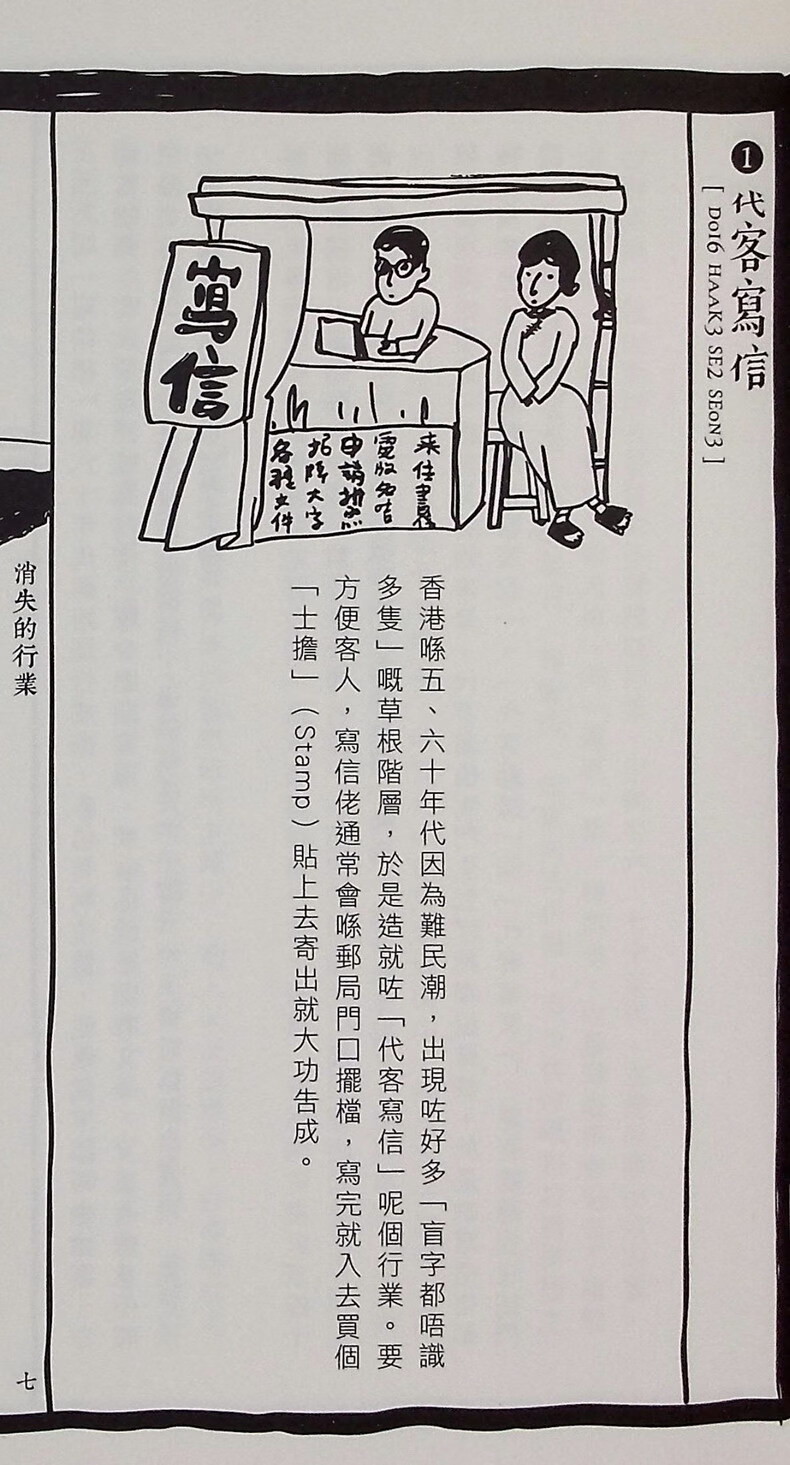 ❶代客寫信
[ DOI6 HAAK3 SE2 SEON3 ]
寫信
來往書信
申請批照
招牌大字
各種文件
香港喺五、六十年代因為難民潮，出現咗好多「盲字都唔識
多隻」嘅草根階層，於是造就咗「代客寫信」呢個行業。要
方便客人，寫信佬通常會喺郵局門口擺檔，寫完就入去買個
「士擔」（Stamp）貼上去寄出就大功告成。
消失的行業
七